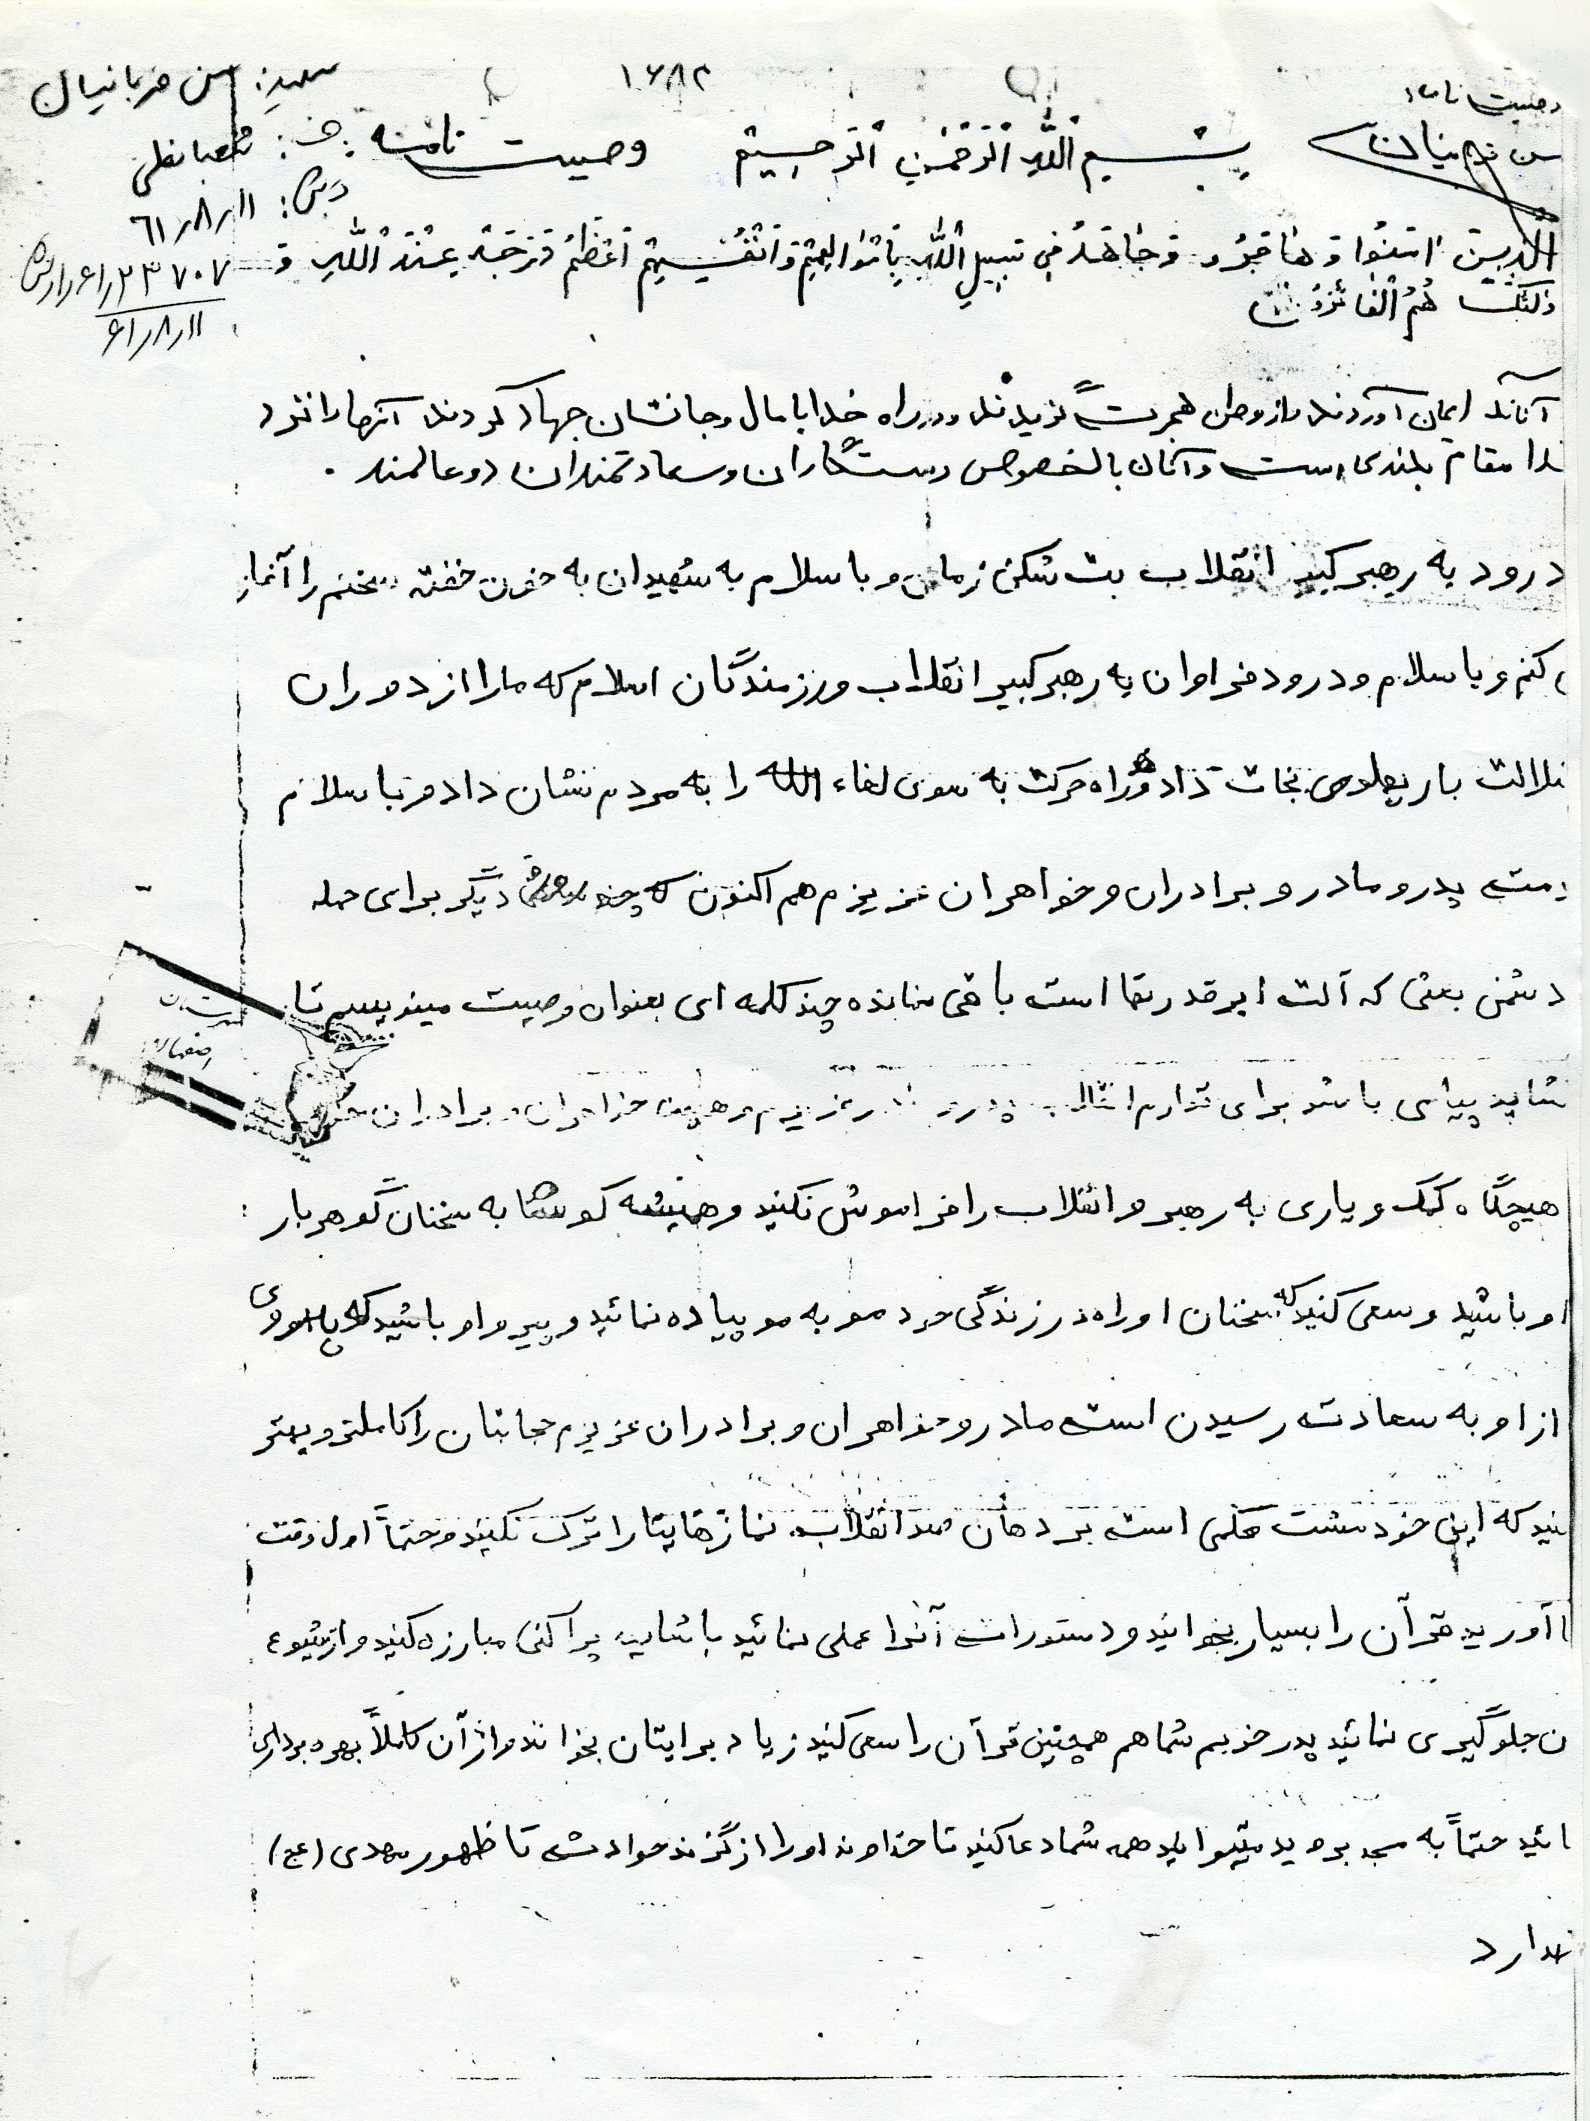 ۱۶۸۲
وصیت نامه
شهید: حسن قربانیان
بسم الله الرحمن الرحیم وصیت نامه
ف: شعبانعلی
۶۱٫۸٫۱۱
الَّذینَ امَنُوا وَ هاجَرُو وَ جاهَدُ فی سَبیلِ اللهِ بِاَمْوالِهِمْ وَ اَنْفُسِهِمْ اَعْظَمُ دَرَجَةً عِنْدَ اللهِ وَ
۲۳۷۰۷
ذلئک هُمُ الْفائِزُونَ
۶۱٫۸٫۱۱
آنانکه ایمان آوردند و از وطن هجرت گزیدند و در راه خدا با مال و جانشان جهاد کردند آنها را نزد
دا مقام بلندی است و آنان بالخصوص رستگاران و سعادتمندان دو عالمند .
درود به رهبر کبیر انقلاب بت شکن زمان و با سلام به شهیدان به خون خفته سخنم را آغاز
ی کنم و با سلام و درود فراوان به رهبر کبیر انقلاب و رزمندگان اسلام که ما را از دوران
ضلالت بار پهلوی نجات داده و راه حرکت به سوی لقاء الله را به مردم نشان داد و با سلام
دمت پدر و مادر و برادران و خواهران عزیزم هم اکنون که چند دیگر برای حمله
دشمن بعثی که آلت ابرقدرتها است باقی نمانده چند کلمه ای بعنوان وصیت مینویسم تا
شاید پیامی باشد برای پدر و عزیزم و همچنین خواهران و برادران
هیچگاه کمک و یاری به رهبر و انقلاب را فراموش نکنید و همیشه گوشتان به سخنان گوهربار
او باشید و سعی کنید که سخنان او را در زندگی خود مو به مو پیاده نمائید و پیرو او باشید که پیروی
از او به سعادت رسیدن است مادر و خواهران و برادران عزیزم حجابتان را کاملتر و بهتر
نید که این خود مشت محکمی است بر دهان ضد انقلاب. نمازهایتان را ترک نکنید و حتماً اول وقت
ا آورید قرآن را بسیار بخوانید و دستورات آنرا عملی نمائید با شایعه پراکنی مبارزه کنید و از شیوع
ن جلوگیری نمائید پدر خوبم شما هم همچنین قرآن را سعی کنید زیاد برایتان بخوانند و از آن کاملاً بهره برداری
ائید حتماً به مسجد بروید میتوانید همه شما دعا کنید تا خداوند او را از گزند حوادث تا ظهور مهدی (عج)
هدارد